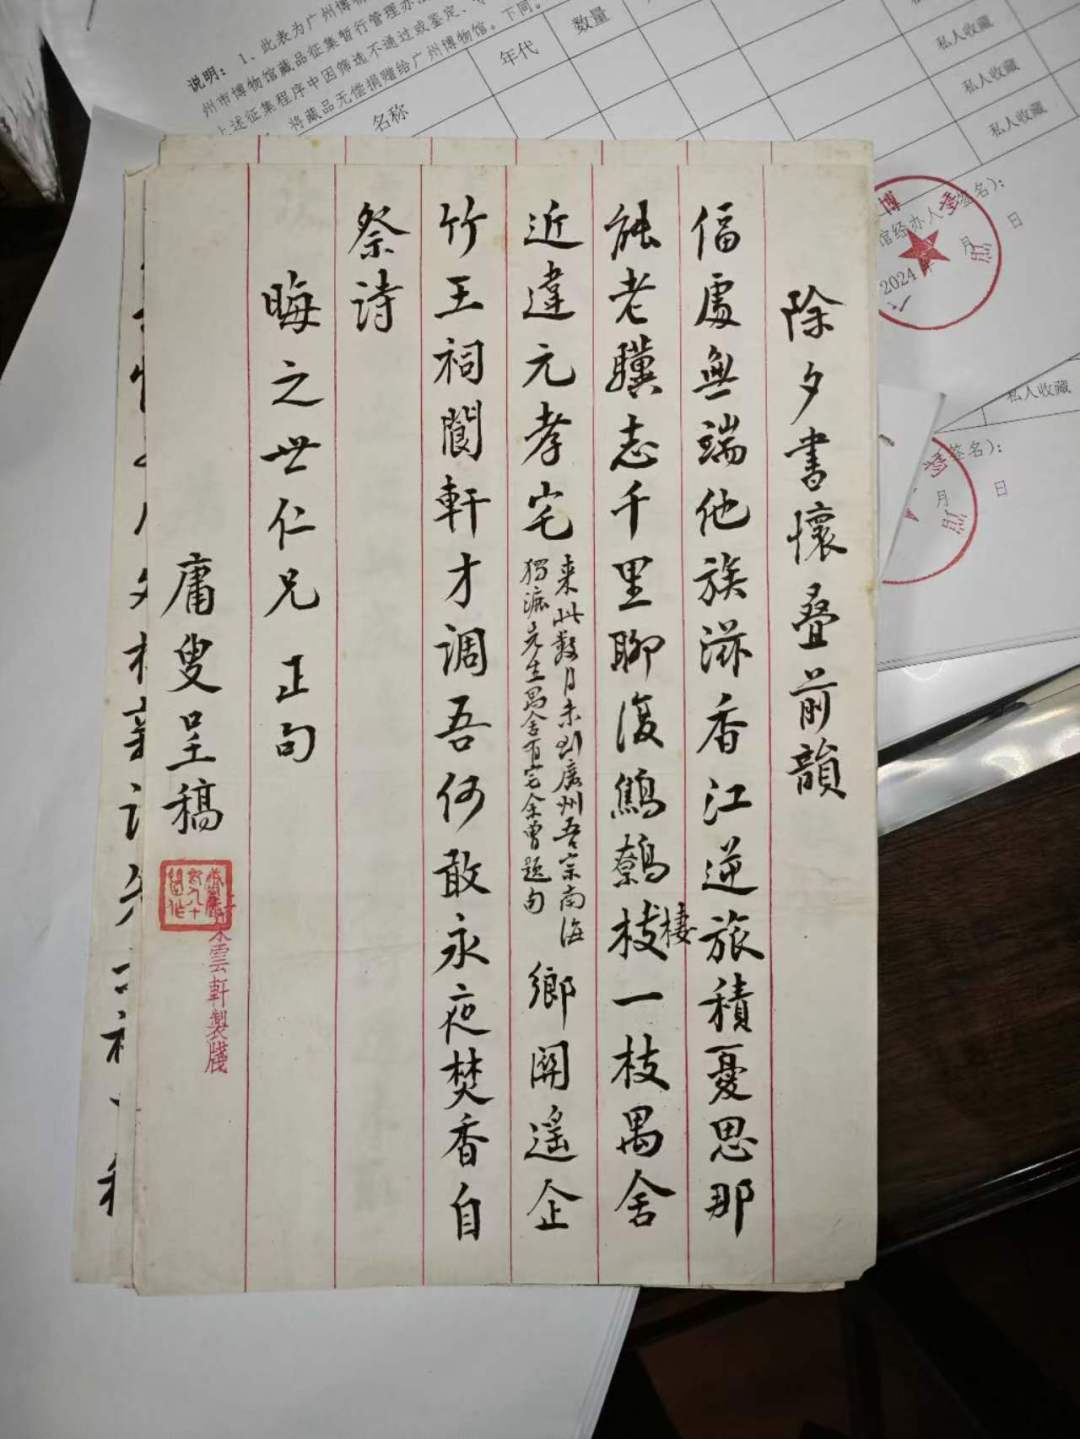 除夕書懷叠前韻
偪處無端他族滋香江逆旅積憂思那
能老驥志千里聊復鷦鷯棲一枝禺舍
近違元孝宅
來此數月未到廣州吾宗南海
獨漉先生禺舍有宅余曾題句
鄉關遙企
竹王祠閬軒才調吾何敢永夜焚香自
祭詩
晦之世仁兄正句
庸叟呈稿
朵雲軒製牋
说明：1、此表为广州博物
州市博物馆藏品征集暂行管理办法
上述征集程序中因筛选不通过或鉴定、
将藏品无偿捐赠给广州博物馆。下同。
名称
年代
数量
私人收藏
私人收藏
私人收藏
馆经办人(签名)：
2024年 月 日
私人收藏
签名)：
月 日